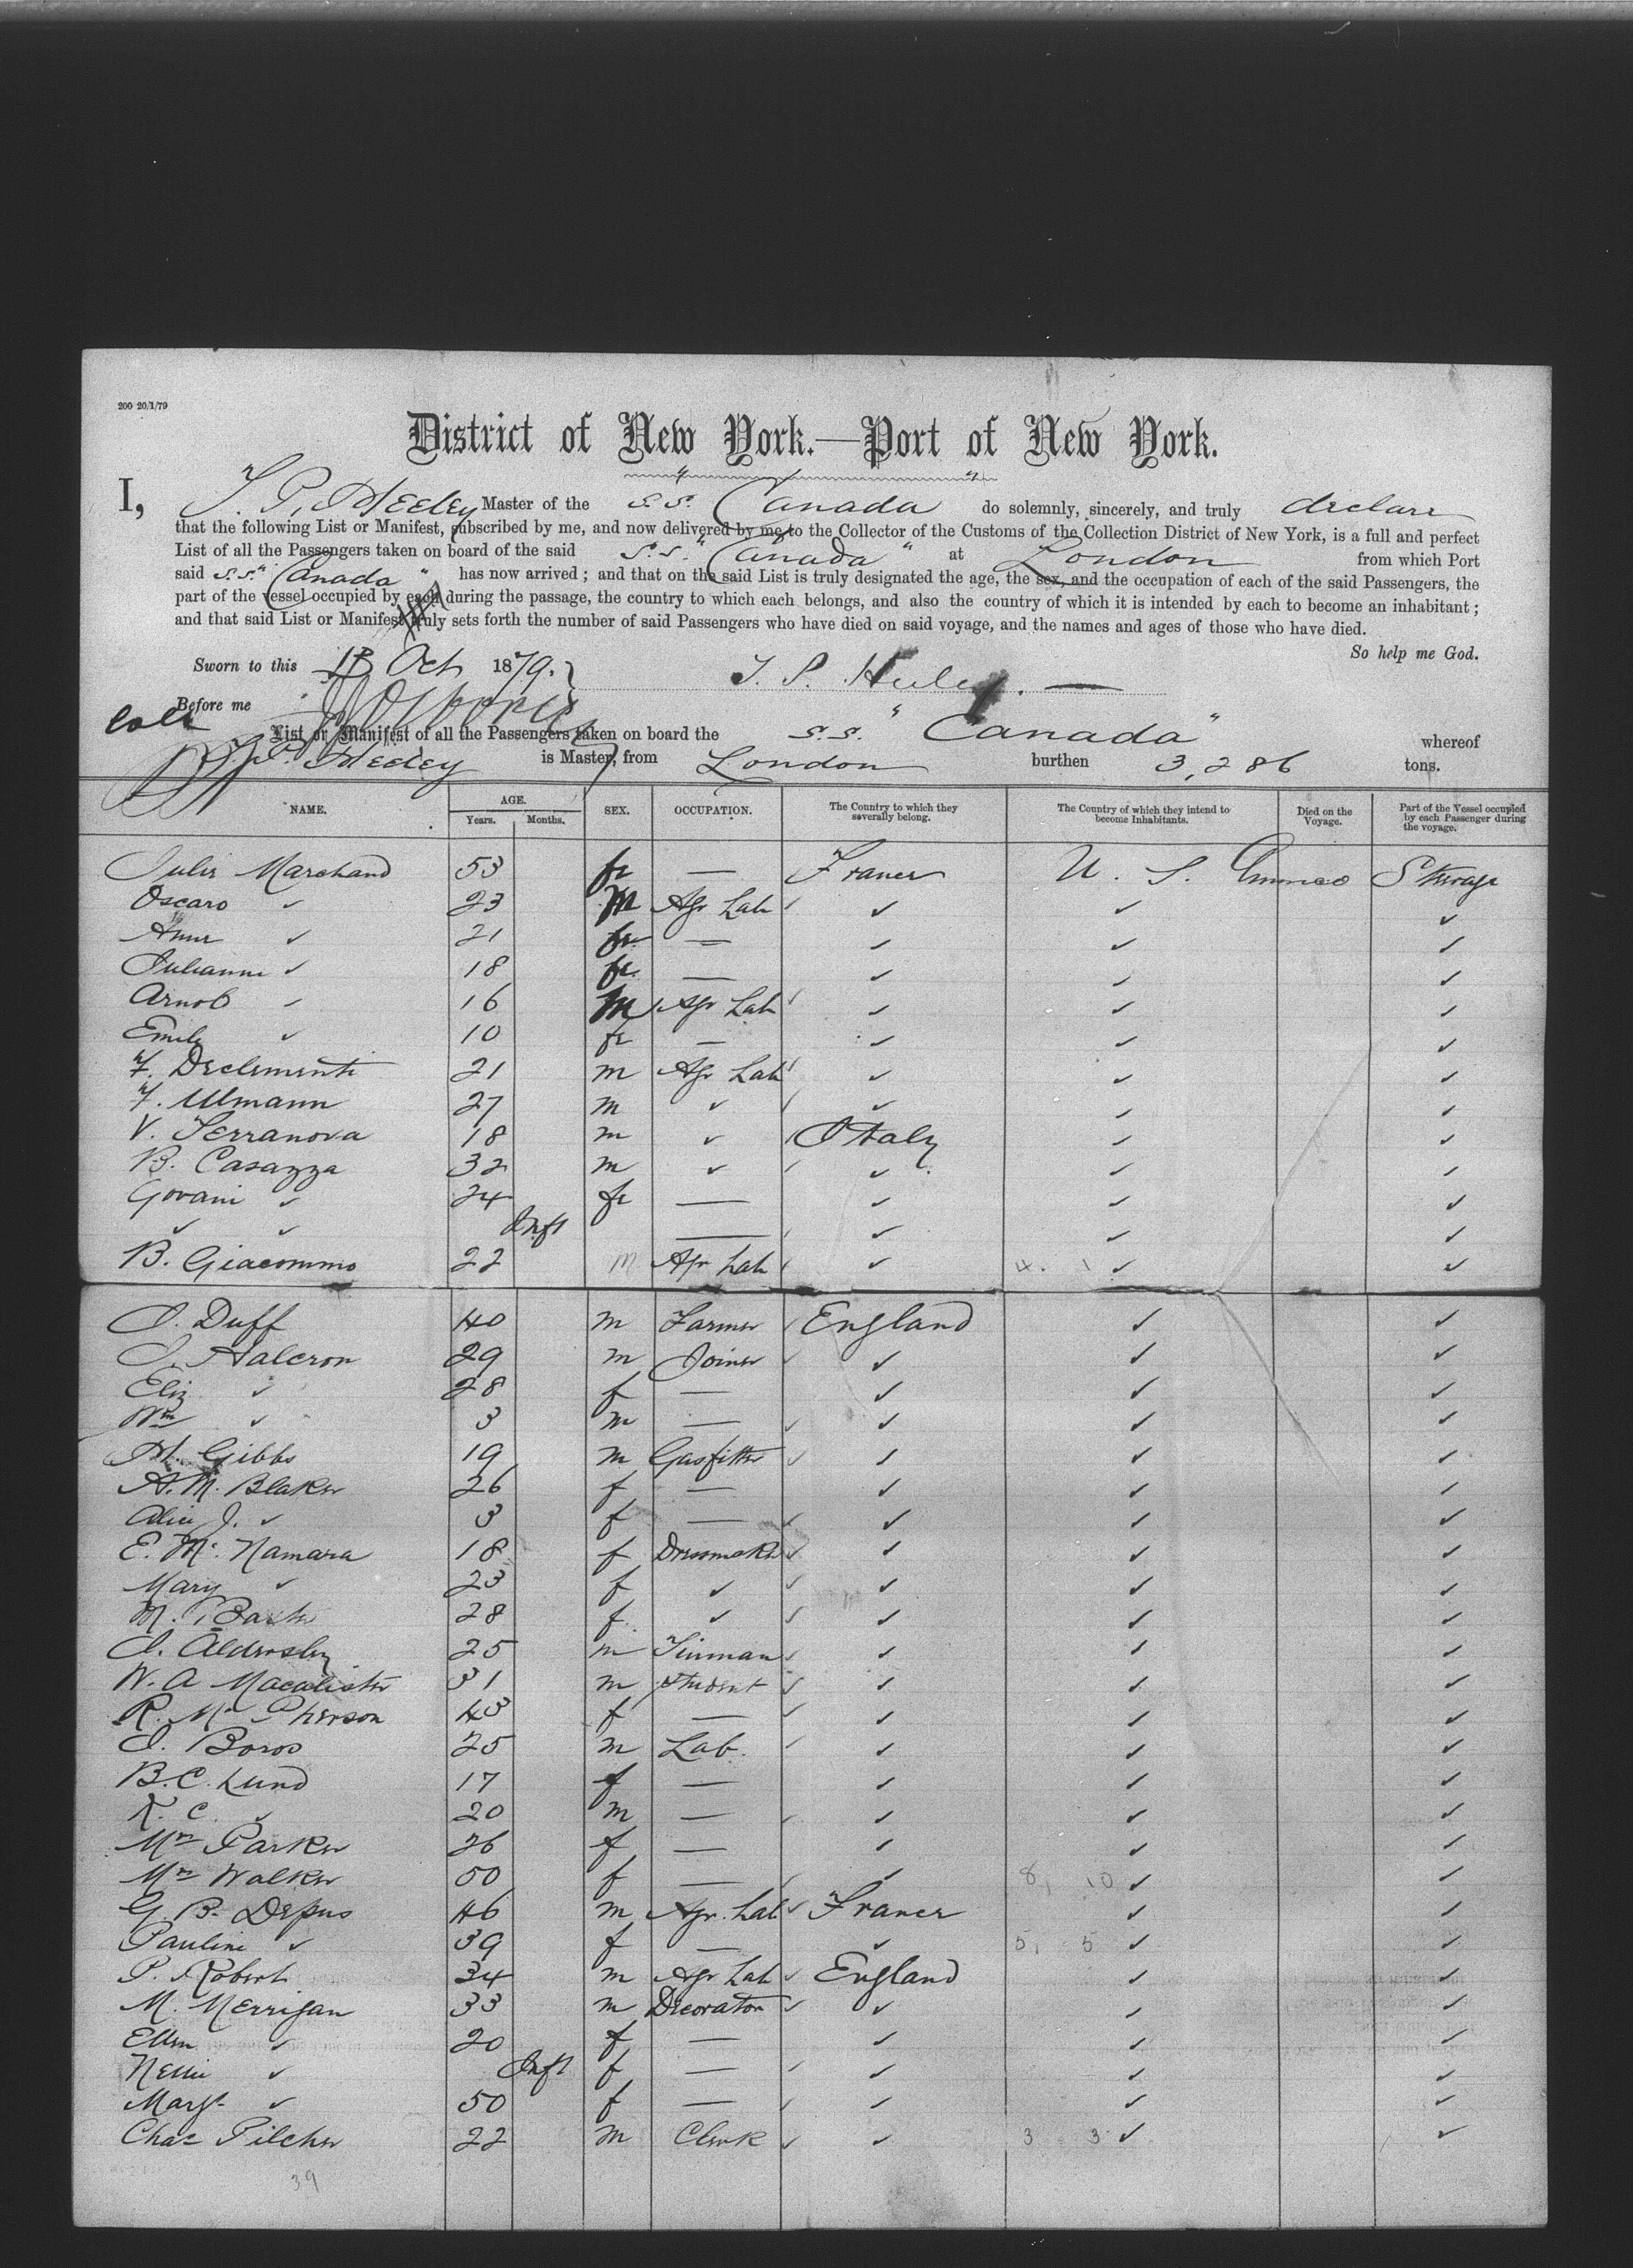 200 20/1/79
District of New York.—Port of New York.
I, T. P. Heeley Master of the S.S. "Canada" do solemnly, sincerely, and truly declare
that the following List or Manifest, subscribed by me, and now delivered by me to the Collector of the Customs of the Collection District of New York, is a full and perfect
List of all the Passengers taken on board of the said S.S. "Canada" at London from which Port
said S.S. "Canada" has now arrived; and that on the said List is truly designated the age, the sex, and the occupation of each of the said Passengers, the
part of the vessel occupied by each during the passage, the country to which each belongs, and also the country of which it is intended by each to become an inhabitant;
and that said List or Manifest truly sets forth the number of said Passengers who have died on said voyage, and the names and ages of those who have died.
So help me God.
Sworn to this 13 Oct 1879. T. P. Heeley.
Before me
List or Manifest of all the Passengers taken on board the S.S. "Canada" whereof
T. P. Heeley is Master, from London burthen 3,286 tons.
NAME. AGE. Years. Months. SEX. OCCUPATION. The Country to which they severally belong. The Country of which they intend to become Inhabitants. Died on the Voyage. Part of the Vessel occupied by each Passenger during the voyage.
Julie Marchand 53 fe — France U. S. America Steerage
Oscaro ✓ 23 M Agr Lab ✓ ✓ ✓
Anne ✓ 21 fe — ✓ ✓ ✓
Julianne ✓ 18 fe — ✓ ✓ ✓
Arnob ✓ 16 M Agr Lab ✓ ✓ ✓
Emile ✓ 10 fe — ✓ ✓ ✓
F. Declementi 21 m Agr Lab ✓ ✓ ✓
F. Ulmann 27 m ✓ ✓ ✓ ✓
V. Terranova 18 m ✓ Italy ✓ ✓
B. Casazza 32 m ✓ ✓ ✓ ✓
Govani ✓ 24 fe — ✓ ✓ ✓
✓ ✓ Inft — ✓ ✓ ✓
B. Giacommo 22 m Agr Lab ✓ 4. 1 ✓ ✓
J. Duff 40 m Farmer England ✓ ✓
J. Halcron 29 m Joiner ✓ ✓ ✓
Eliz ✓ 28 f — ✓ ✓ ✓
Wm ✓ 3 m — ✓ ✓ ✓
H. Gibbs 19 m Gasfitter ✓ ✓ ✓
A. M. Blaker 26 f — ✓ ✓ ✓
Alice J. ✓ 3 f — ✓ ✓ ✓
E. McNamara 18 f Dressmaker ✓ ✓ ✓
Mary ✓ 23 f ✓ ✓ ✓ ✓
M. 28 f ✓ ✓ ✓ ✓
J. Aldersley 25 m Tinman ✓ ✓ ✓
W. A Macalister 31 m Student ✓ ✓ ✓
R. McPherson 43 f — ✓ ✓ ✓
J. Boros 25 m Lab. ✓ ✓ ✓
B. C. Lund 17 f — ✓ ✓ ✓
K. C. ✓ 20 m — ✓ ✓ ✓
Mrs Parker 26 f — ✓ ✓ ✓
Mrs Walker 50 f — ✓ 8, 10 ✓ ✓
G. B. Depus 46 m Agr. Lab France ✓ ✓
Pauline ✓ 39 f — ✓ 5, 5 ✓ ✓
P. Robert 34 m Agr Lab England ✓ ✓
M. Merrigan 33 m Decorator ✓ ✓ ✓
Ellen ✓ 20 f — ✓ ✓ ✓
Nellie ✓ Inft f — ✓ ✓ ✓
Margt ✓ 50 f — ✓ ✓ ✓
Chas Pilcher 22 m Clerk ✓ 3 3 ✓ ✓
39